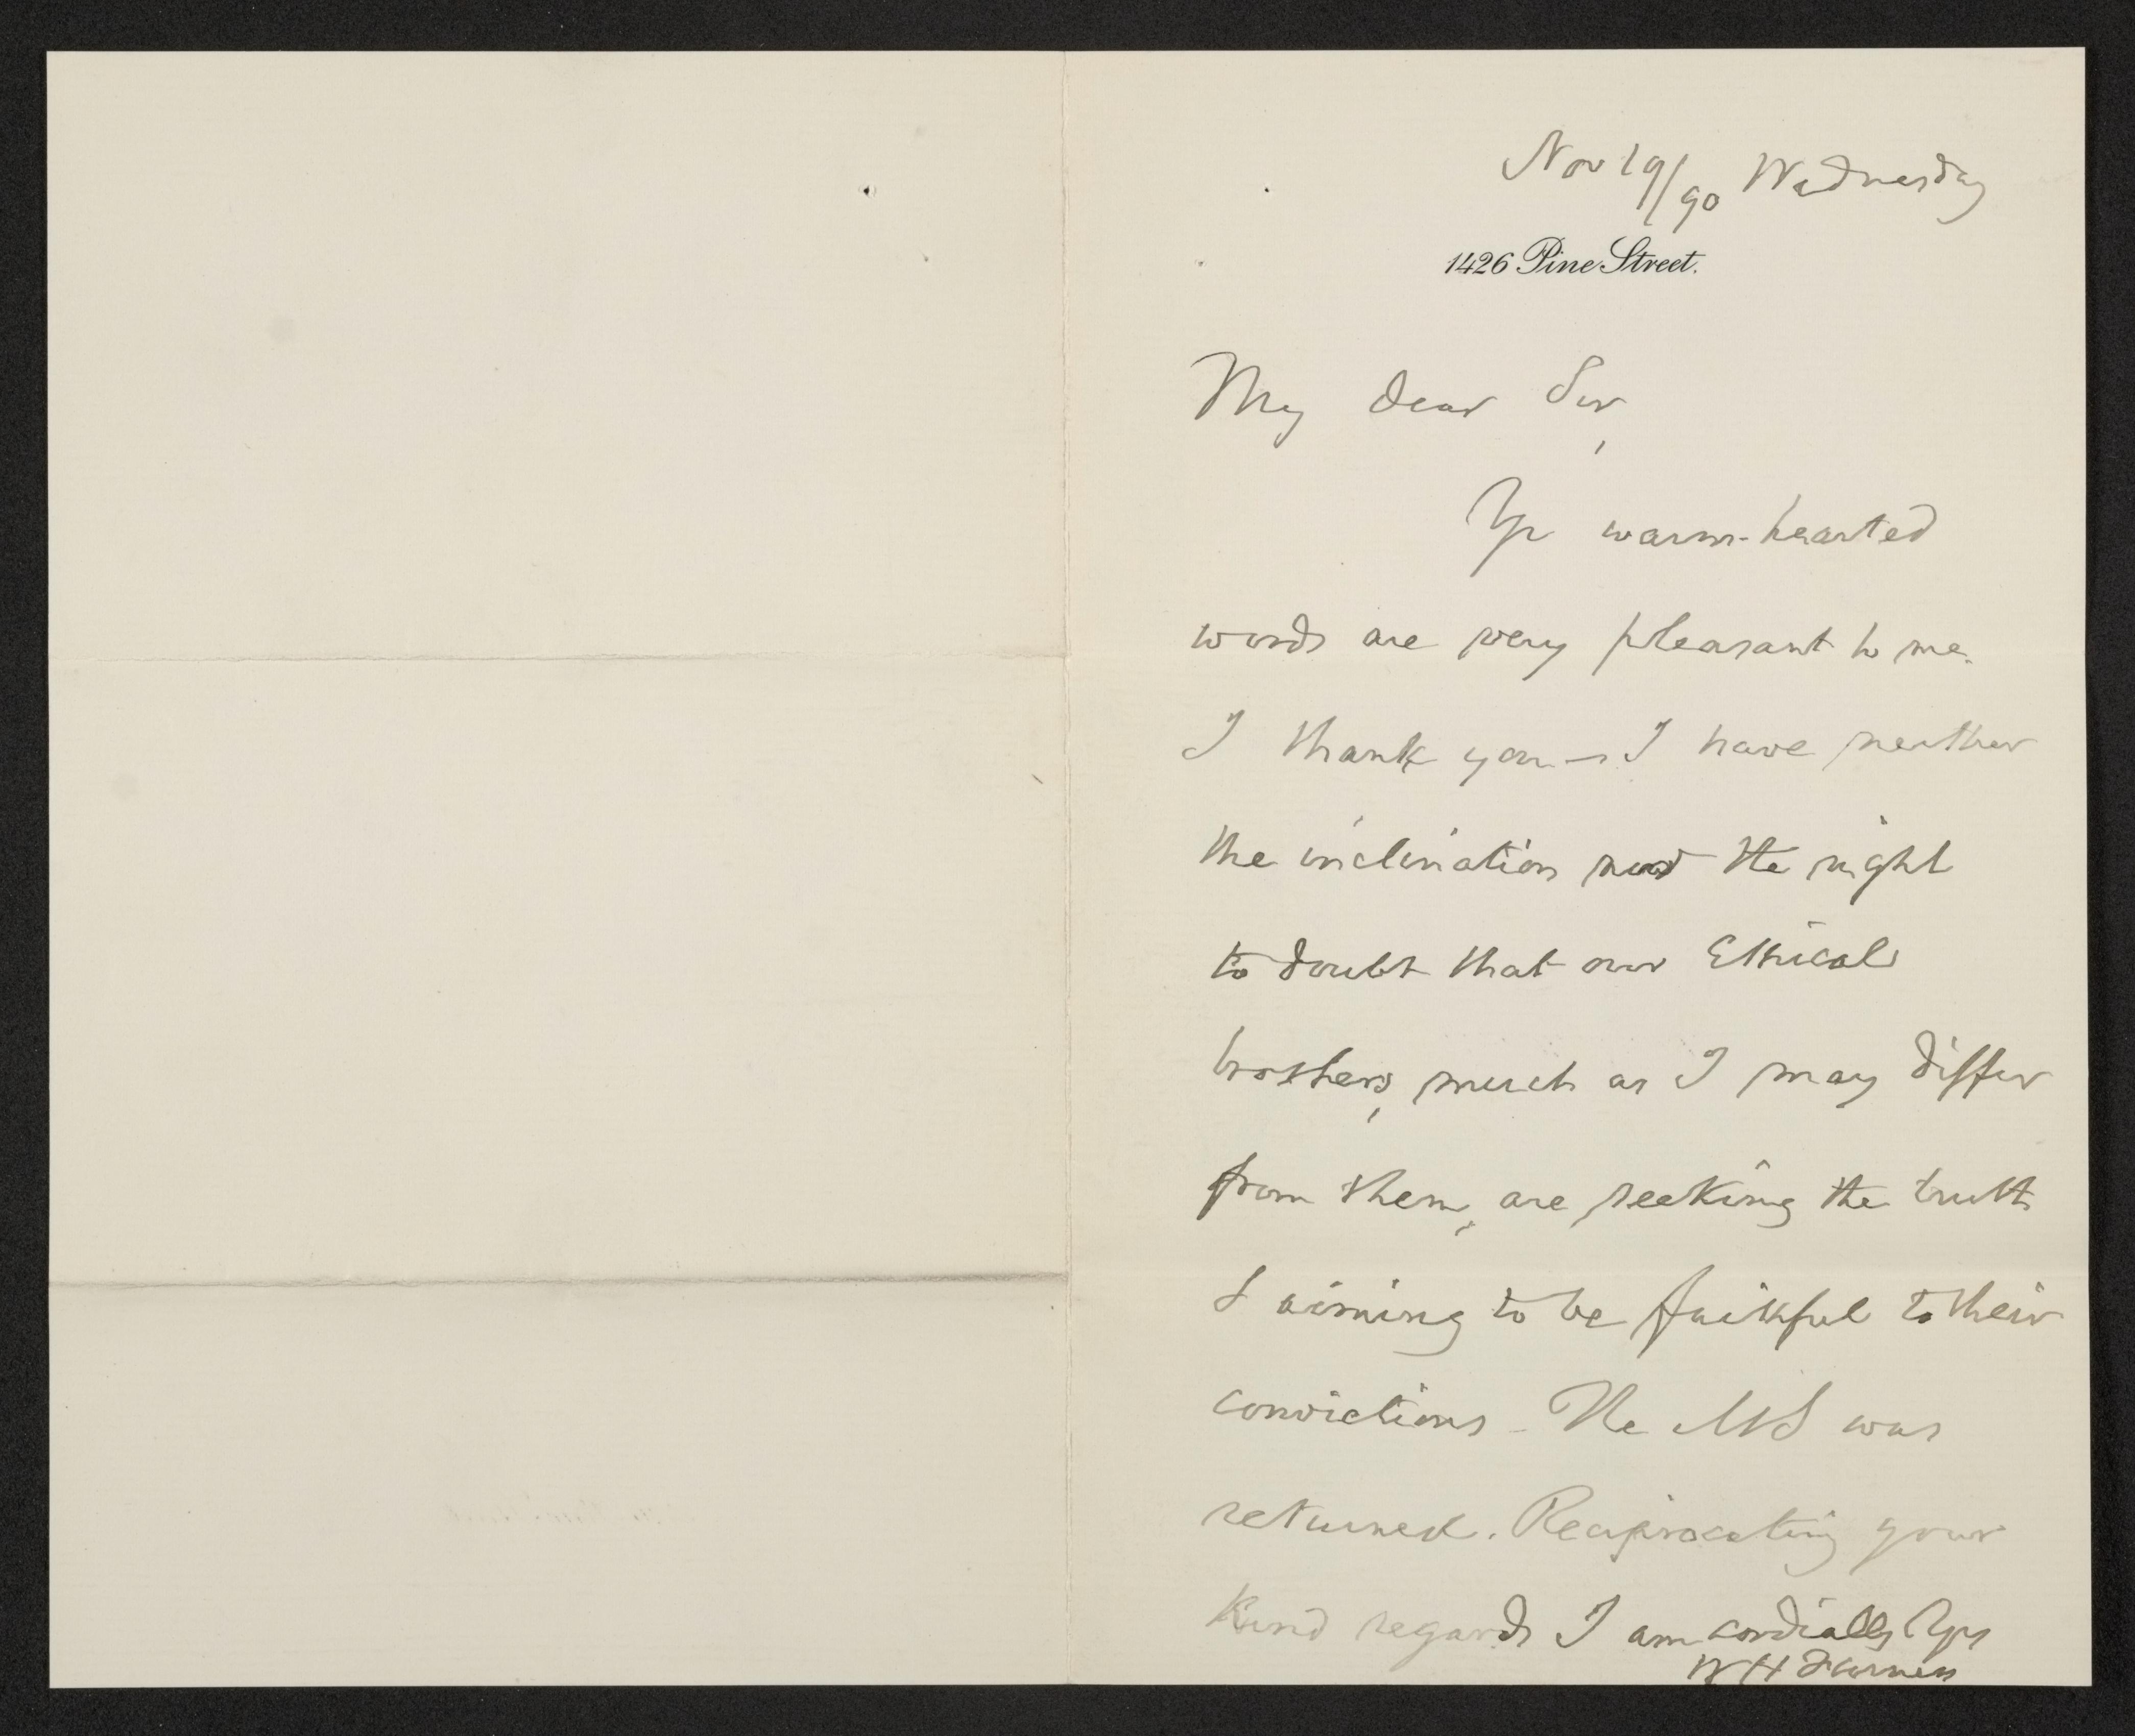 Nov 19/90 Wednesday
1426 Pine Street.
My dear Sir,
Yr warm-hearted
words are very pleasant to me.
I thank you — I have neither
the inclination nor the right
to doubt that our Ethical
brothers, much as I may differ
from them, are seeking the truth
& aiming to be faithful to their
convictions - The MS was
returned. Reciprocating your
kind regards I am cordially Yrs
W H Furness